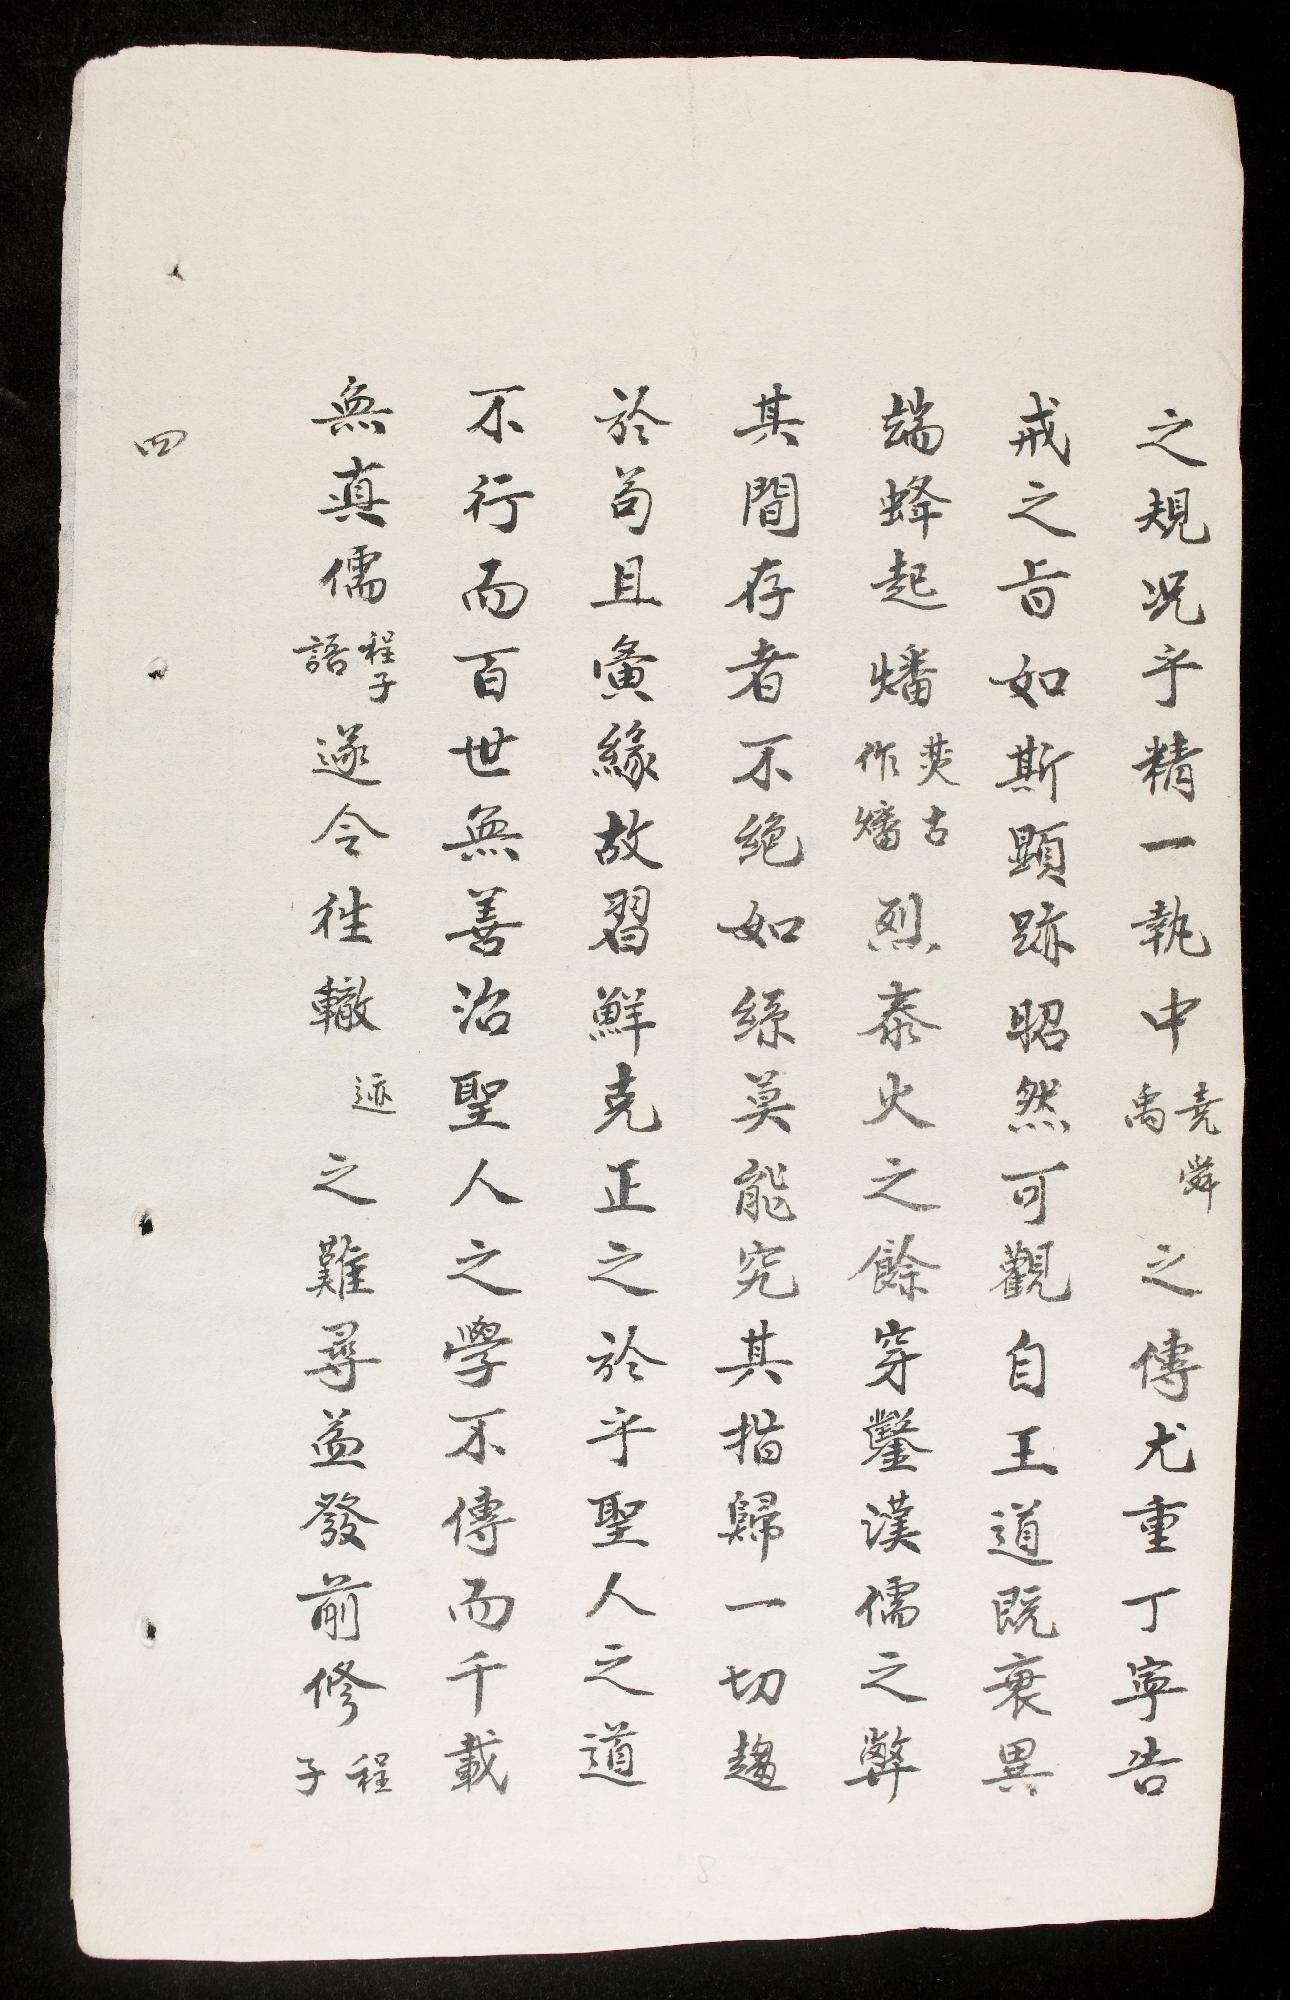 之規况乎精一執中堯舜禹之傳尤重丁寧告
戒之旨如斯顯跡昭然可觀自王道既衰異
端蜂起燔焚古作燔烈秦火之餘穿鑿漢儒之弊
其間存者不絶如綫莫能究其指歸一切趨
於苟且夤緣故習鮮克正之於乎聖人之道
不行而百世無善治聖人之學不傳而千載
無真儒程子語遂令徃轍迹之難尋益發前修程子
四
8